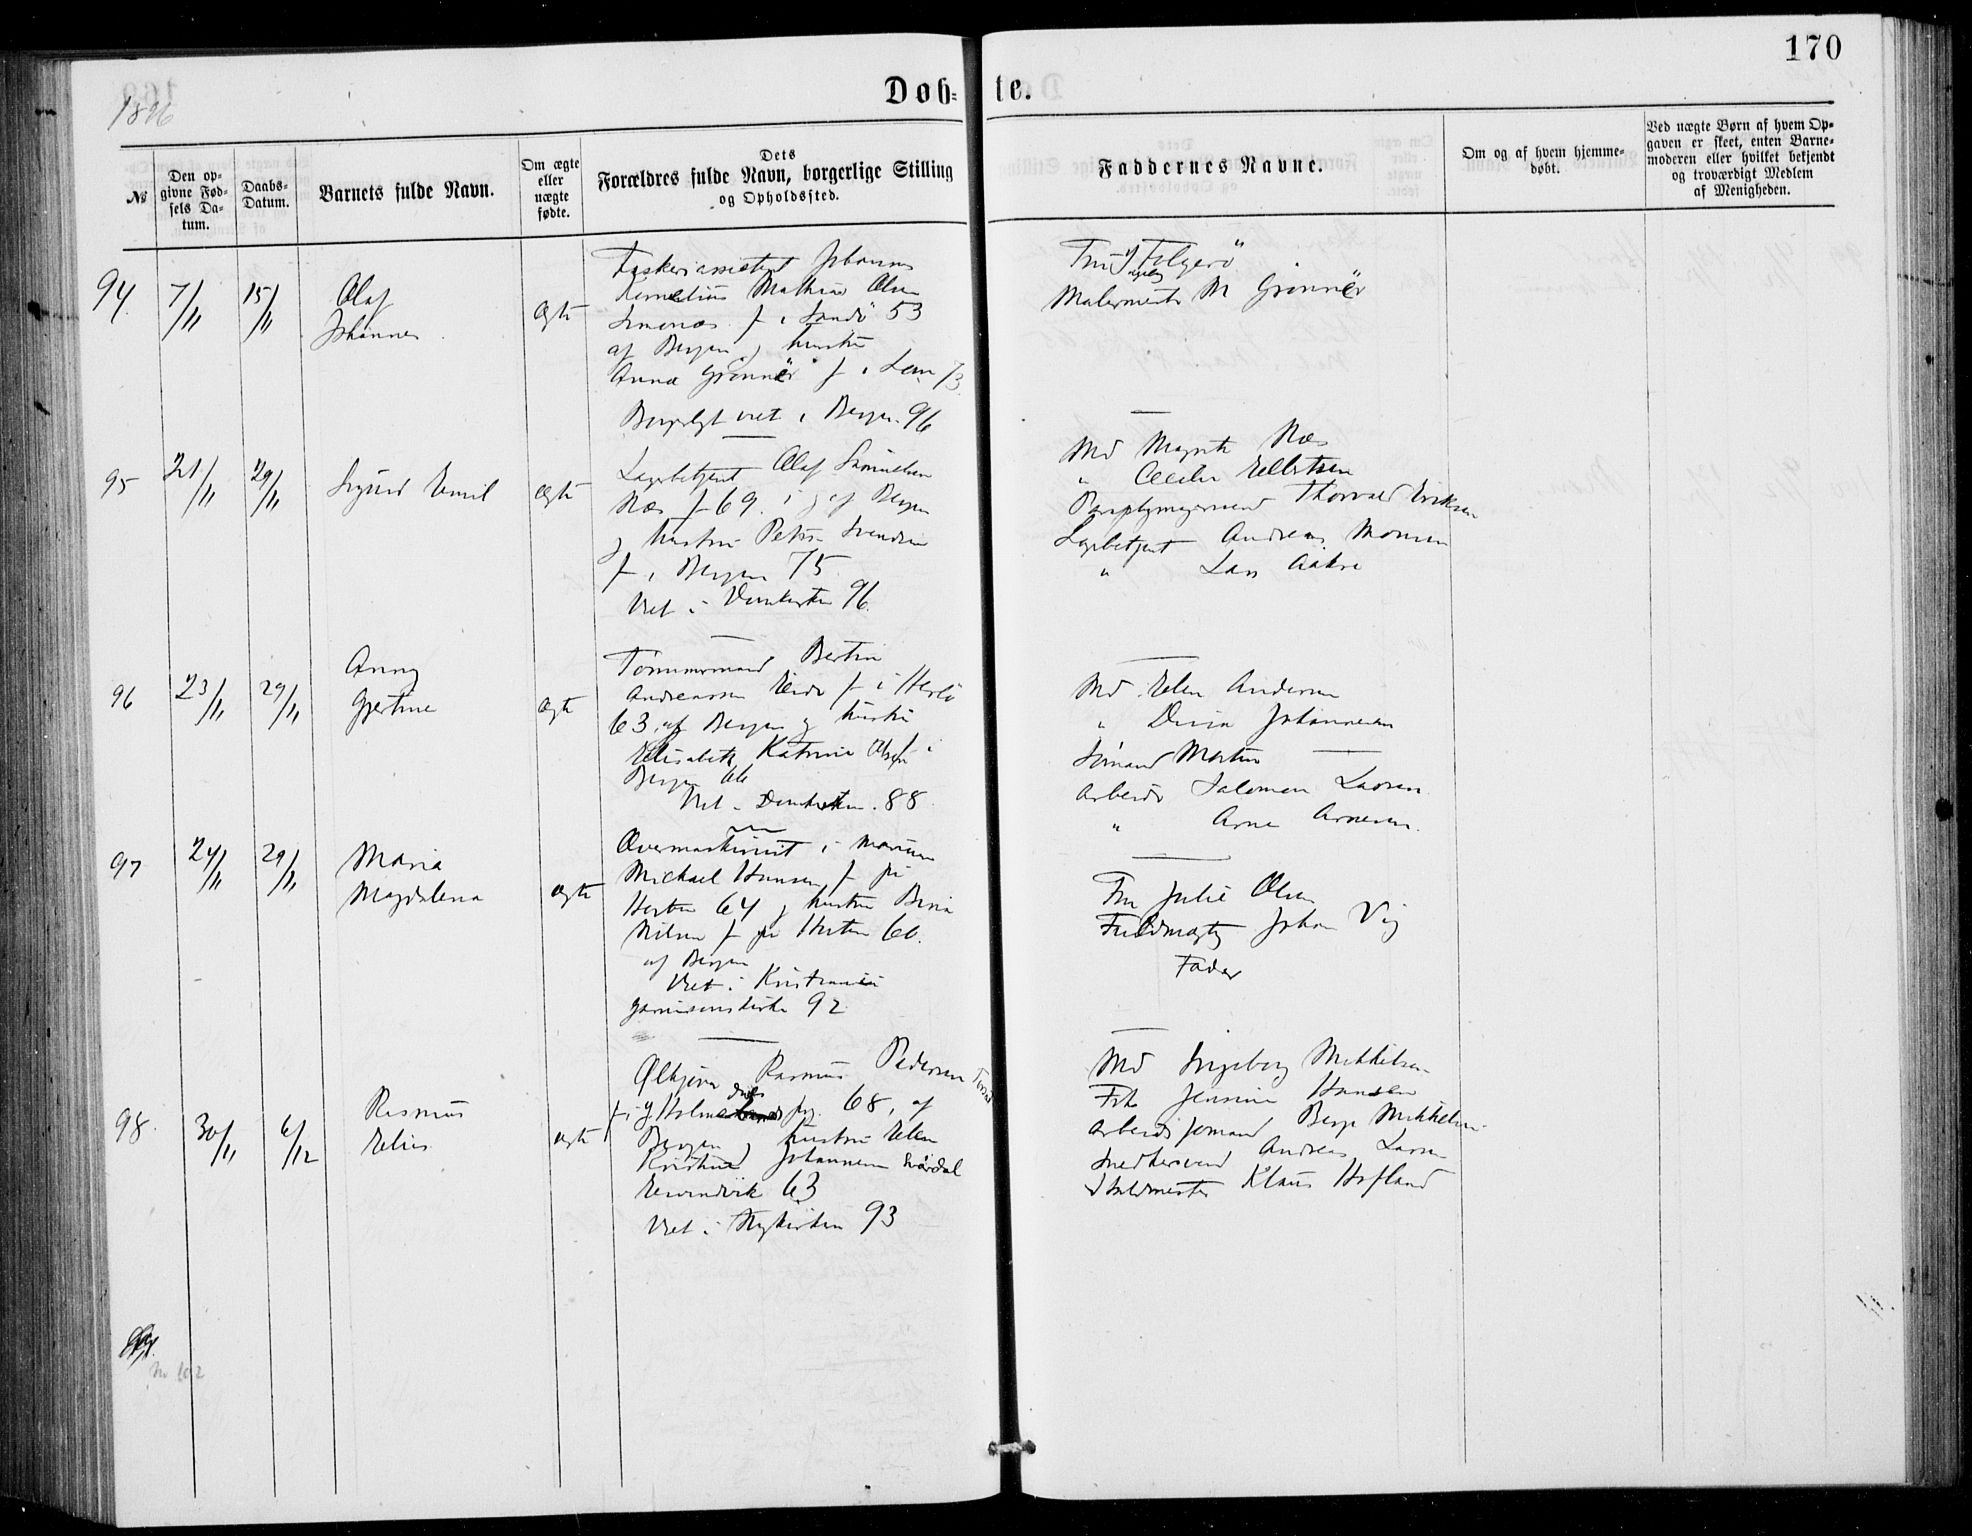 170
1896
Døb=te.
№
Den op-
givne Fød-
sels Da-
tum.
Daabs-
Datum.
Barnets fulde Navn.
Om ægte
eller
uægte
fødte.
Dets
Forældres fulde Navn, borgerlige Stilling
og Opholdssted.
Faddernes Navne.
Om og af hvem hjemme-
døbt.
Ved uægte Børn af hvem Op-
gaven er skeet, enten Barne-
moderen eller hvilket bekjendt
og troværdigt Medlem
af Menigheden.
94.
7/11
15/11
Olaf
Johannes
ægte
Johannes
Kornelius Mathias Olsen
f i Sandö 53
af Bergen og hustru
Anna Grönnër f i Lem 73
Borgerligt viet i Bergen 96
Fru
Malermester M Grönnër
95
21/11
29/11
Sigurd Emil
ægte
Lagerbetjent Olaf Samuelsen
Næs f 69. i og af Bergen
og hustru Petra Svendsen
f i Bergen 75
Viet i Domkirken 96.
Md Magnhi Næs
" Cecilie Ellertsen
Thorvald Eriksen
Lagerbetjent Andreas Monsen
" Lars Aakre
96
23/11
29/11
Anny
Gjertine
ægte
Tømmermand Bertin
Andreassen Eide f i Herlö
63 af Bergen og hustru
Elisabeth Katrine Olsen f i
Bergen 66
Viet i Domkirken. 88
Md Elen Andersen
" Johannesen
Sømand Morten —
Arbeider Salomon Larsen
" Arne Arnesen
97
24/11
29/11
Maria
Magdalena
ægte
Overmaskinist i Marinen
Michael Hansen f på
Horten 64 og hustru
Nilsen f på Horten 66.
af Bergen
Viet i Kristiania
garnisonskirke 92
Fru Julie Olsen
Fuldmægtig Johan Vig
Fader
98.
30/11
6/12
Rasmus
Elias
ægte
Ølkjører Rasmus Pedersen
f i 68, af
Bergen og hustru Elen
Kristine Johannesen
Eivindvik 63
Viet i Nykirken 93
Md Ingeborg Mikkelsen
Frk Jensine Hansen
Arbeidsformand Berge Mikkelsen
Snedkersvend Andreas Larsen
Stuldmester Klaus Hofland
No 102